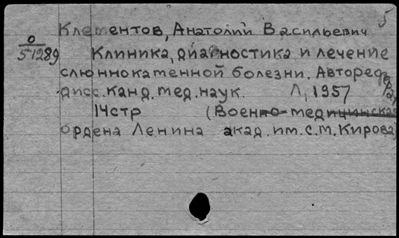 5
Клементов, Анатолий Васильевич
О
51289
Клиника, диагностика и лечение
слюннокаменной болезни. Автореф.
дисс. канд. мед. наук. Л, 1957
14стр (Военно-медицинская
ордена Ленина акад. им. С.М. Кирова)